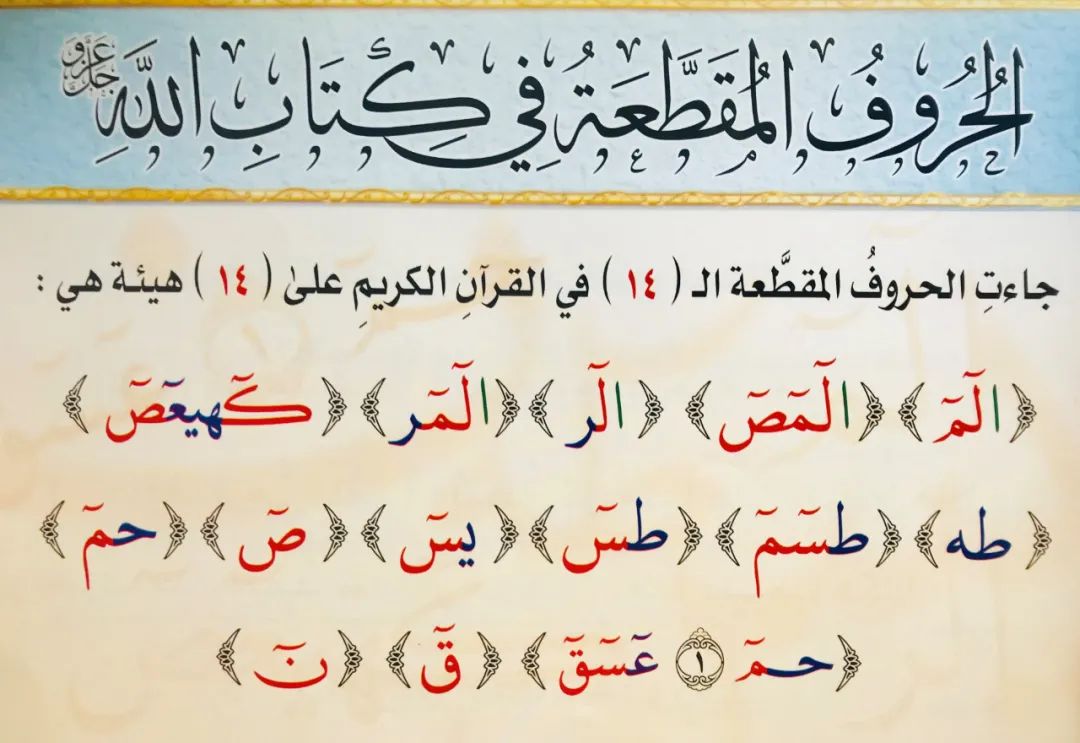 الحُرُوفُ المُقَطَّعَةُ فِي كِتَابِ اللَّهِ عَزَّ وَجَلَّ
جاءتِ الحروفُ المقطَّعة الـ ( ١٤ ) في القرآنِ الكريمِ علىٰ ( ١٤ ) هيئـة هي :
﴿الٓمٓ﴾ ﴿الٓمٓصٓ﴾ ﴿الٓر﴾ ﴿الٓمٓر﴾ ﴿كٓهيعٓصٓ﴾
﴿طه﴾ ﴿طسٓمٓ﴾ ﴿طسٓ﴾ ﴿يسٓ﴾ ﴿صٓ﴾ ﴿حمٓ﴾
﴿حمٓ ١ عٓسٓقٓ﴾ ﴿قٓ﴾ ﴿نٓ﴾